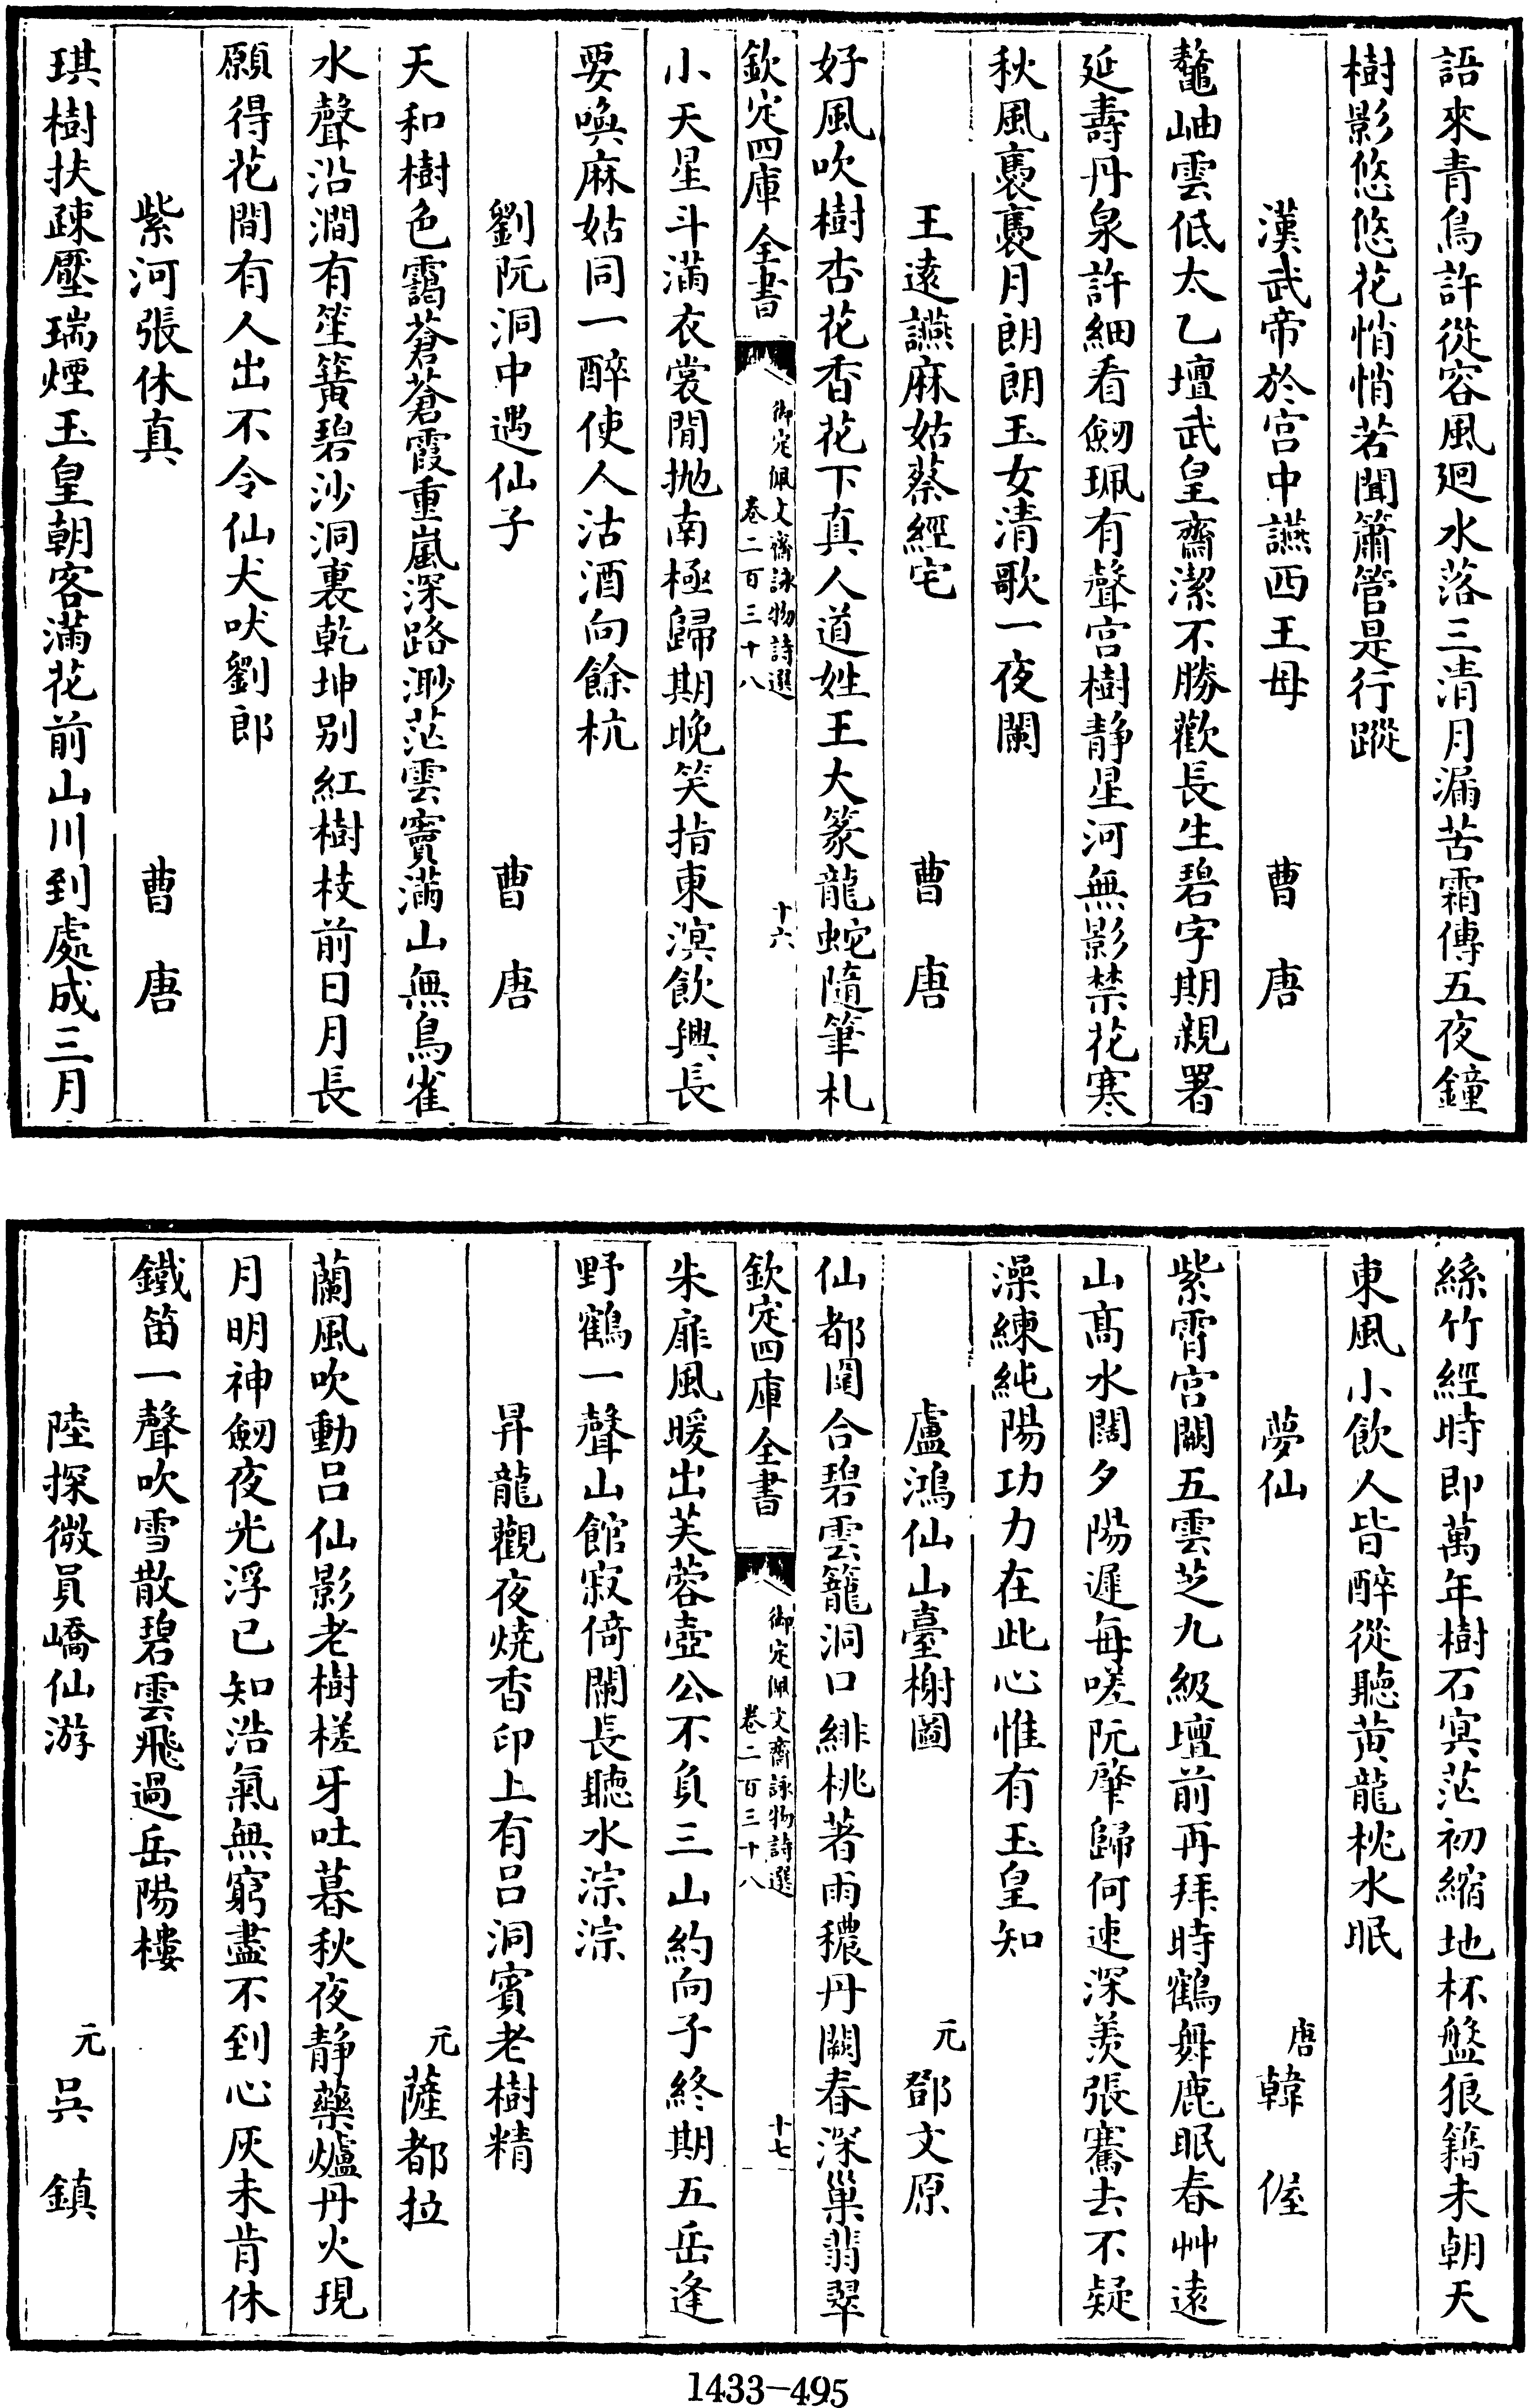 語來青鳥許從容風廻水落三清月漏苦霜傳五夜鐘
樹影悠悠花悄悄若聞簫管是行蹤
漢武帝於宫中讌西王母 曹唐
鼇岫雲低太乙壇武皇齋潔不勝歡長生碧字期親署
延壽丹泉許細看劒珮有聲宫樹静星河無影禁花寒
秋風裊裊月朗朗玉女清歌一夜闌
王遠讌麻姑蔡經宅 曹唐
好風吹樹杏花香花下真人道姓王大篆龍蛇隨筆札
欽定四庫全書 御定佩文齋詠物詩選 卷二百三十八 十六
小天星斗滿衣裳閒抛南極歸期晚笑指東溟飲興長
要喚麻姑同一醉使人沽酒向餘杭
劉阮洞中遇仙子 曹唐
天和樹色靄蒼蒼霞重嵐深路渺茫雲竇滿山無鳥雀
水聲沿澗有笙簧碧沙洞裏乾坤别紅樹枝前日月長
願得花間有人出不令仙犬吠劉郎
紫河張休真 曹唐
琪樹扶疎壓瑞煙玉皇朝客滿花前山川到處成三月
絲竹經時即萬年樹石冥茫初縮地杯盤狼籍未朝天
東風小飲人皆醉從聽黄龍枕水眠
夢仙 唐韓偓
紫霄宫闕五雲芝九級壇前再拜時鶴舞鹿眠春艸遠
山髙水闊夕陽遲每嗟阮肇歸何速深羨張騫去不疑
澡練純陽功力在此心惟有玉皇知
盧鴻仙山臺榭圖 元鄧文原
仙都闓合碧雲籠洞口緋桃著雨穠丹闕春深巢翡翠
欽定四庫全書 御定佩文齋詠物詩選 卷二百三十八 十七
朱扉風暖出芙蓉壺公不負三山約向子終期五岳逢
野鶴一聲山館寂倚闌長聽水淙淙
昇龍觀夜燒香印上有吕洞賓老樹精
元薩都拉
蘭風吹動吕仙影老樹槎牙吐暮秋夜静藥爐丹火現
月明神劒夜光浮已知浩氣無窮盡不到心灰未肯休
鐵笛一聲吹雪散碧雲飛過岳陽樓
陸探微員嶠仙游 元吳鎮
1433-495